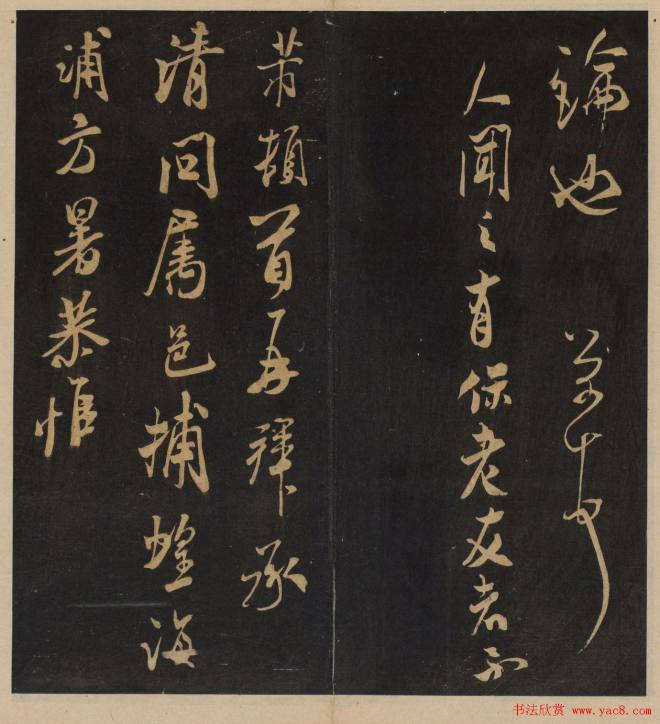 論也
人聞之有保老友者不
芾頓首再拜承
清問属邑捕蝗海
浦方暑恭惟
书法欣赏 www.yac8.com